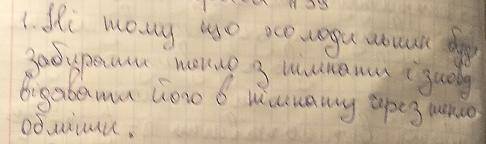 1. Ні тому що холодильник буде
забирати тепло з кімнати і знову
відавати його в кімнату через тепло-
обмінник.